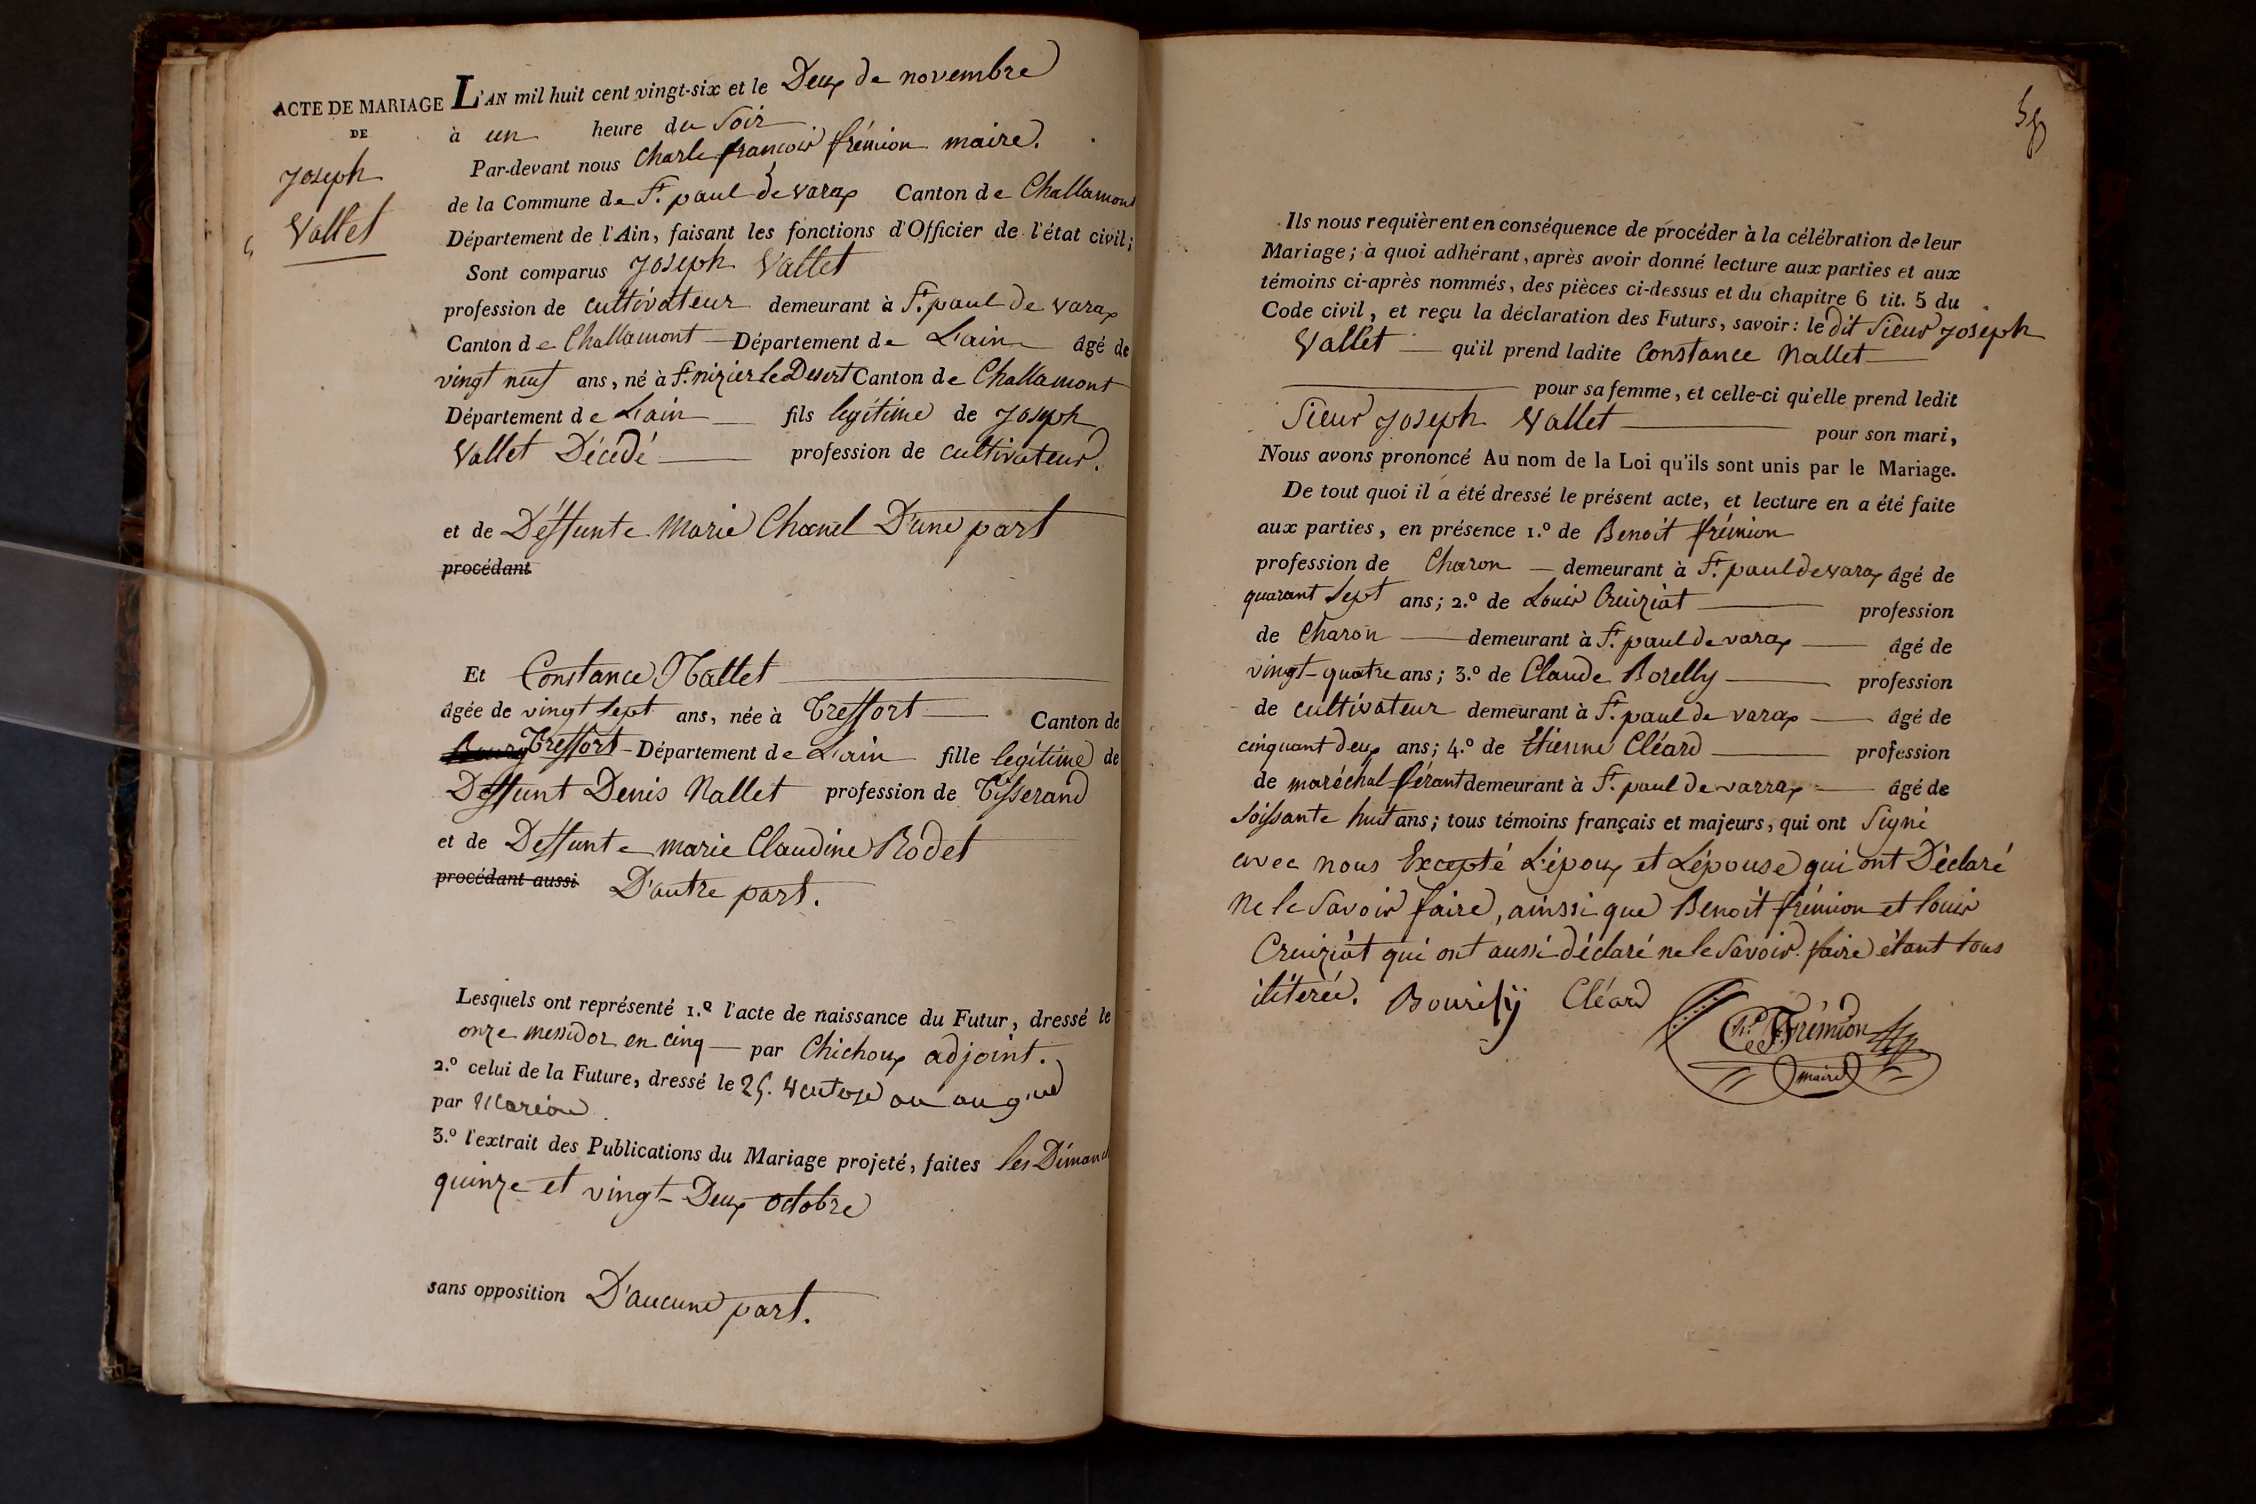 ACTE DE MARIAGE
DE
Joseph
Vallet
L'AN mil huit cent vingt-six et le Deux de novembre
à un heure du Soir
Par-devant nous Charle françois frémion maire.
de la Commune de St. paul de varax Canton de Challamont
Département de l'Ain, faisant les fonctions d'Officier de l'état civil;
Sont comparus Joseph Vallet
profession de cultivateur demeurant à St. paul de varax
Canton de Challamont Département de L'ain âgé de
vingt neuf ans, né à St. nizier le Desert Canton de Challamont
Département de L'ain fils legitime de Joseph
Vallet Décédé profession de cultivateur.
et de Deffunte Marie Chanel D'une part
procédant
Et Constance Nallet
âgée de vingt sept ans, née à Treffort Canton de
Bourg Treffort Département de L'ain fille legitime de
Deffunt Denis Nallet profession de Tisserand
et de Deffunte marie Claudine Rodet
procédant aussi D'autre part.
Lesquels ont représenté 1.º l'acte de naissance du Futur, dressé le
onze messidor en cinq par Chichoux adjoint.
2.º celui de la Future, dressé le 25. Ventose
par
3.º l'extrait des Publications du Mariage projeté, faites les Dimanch
quinze et vingt-Deux octobre
sans opposition D'aucune part.
Ils nous requièrent en conséquence de procéder à la célébration de leur
Mariage; à quoi adhérant, après avoir donné lecture aux parties et aux
témoins ci-après nommés, des pièces ci-dessus et du chapitre 6 tit. 5 du
Code civil, et reçu la déclaration des Futurs, savoir: le dit Sieur Joseph
Vallet qu'il prend ladite Constance Nallet
pour sa femme, et celle-ci qu'elle prend ledit
Sieur Joseph Vallet pour son mari,
Nous avons prononcé Au nom de la Loi qu'ils sont unis par le Mariage.
De tout quoi il a été dressé le présent acte, et lecture en a été faite
aux parties, en présence 1.º de Benoit frémion
profession de Charon demeurant à St. paul de varax âgé de
quarant sept ans; 2.º de Louis Cruiziat profession
de Charon demeurant à St. paul de varax âgé de
vingt-quatre ans; 3.º de Claude Borelly profession
de cultivateur demeurant à St. paul de varax âgé de
cinquant deux ans; 4.º de Etienne Cléard profession
de maréchal férant demeurant à St. paul de varrax âgé de
soissante huit ans; tous témoins français et majeurs, qui ont Signé
avec nous Excepté L'époux et Lépouse qui ont Déclaré
ne le Savoir faire, ainssi que Benoit frémion et louis
Cruiziat qui ont aussi déclaré ne le Savoir faire étant tous
iliterée. Cléard
Frémion
maire